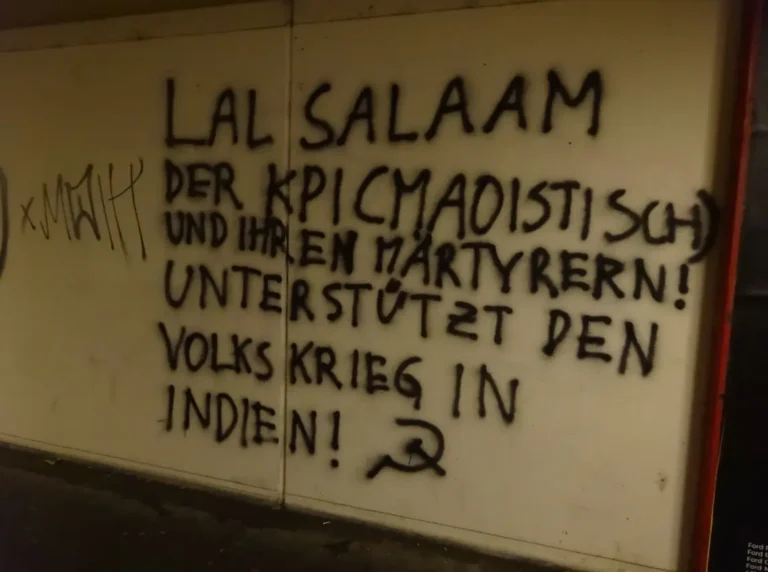 LAL SALAAM
DER KPI(MAOISTISCH)
UND IHREN MÄRTYRERN!
UNTERSTÜTZT DEN
VOLKSKRIEG IN
INDIEN!